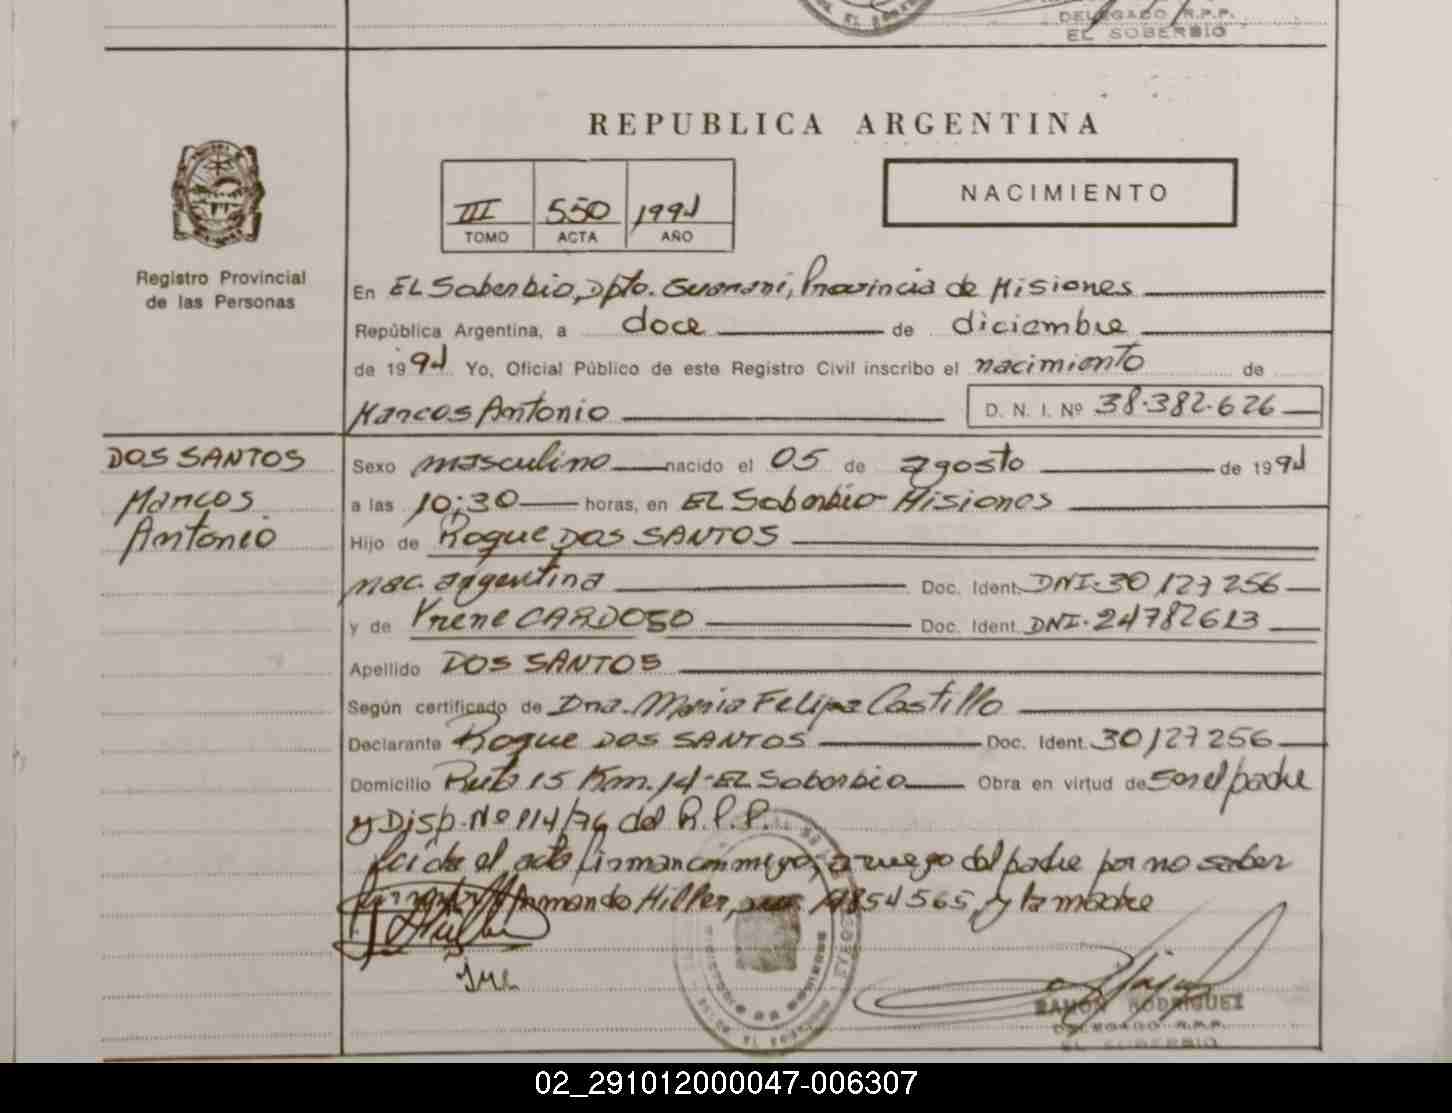 DELEGADO R.P.P.
EL SOBERBIO
REPUBLICA ARGENTINA
NACIMIENTO
III 550 1994
TOMO ACTA AÑO
Registro Provincial
de las Personas
En EL Soberbio, Dpto. Guarani, Provincia de Misiones
República Argentina, a doce de diciembre
de 1994 Yo, Oficial Público de este Registro Civil inscribo el nacimiento de
Marcos Antonio D. N. I. Nº 38.382.626
DOS SANTOS
Marcos
Antonio
Sexo masculino nacido el 05 de agosto de 1994
a las 10:30 horas, en EL Soberbio-Misiones
Hijo de Roque DOS SANTOS
nac. argentina Doc. Ident. DNI-30127256
y de Yrene CARDOSO Doc. Ident. DNI-24782613
Apellido DOS SANTOS
Según certificado de Dra. Maria Felipa Castillo
Declarante Roque DOS SANTOS Doc. Ident. 30127256
Domicilio Ruta 15 Km. 14-EL Soberbio Obra en virtud de ser el padre
y Disp. Nº 114/76 del R.P.P.
Leida el acta firman conmigo, a ruego del padre por no saber
Armando Hiller, y la madre
RAMON RODRIGUEZ
DELEGADO R.P.P.
EL SOBERBIO
02_291012000047-006307